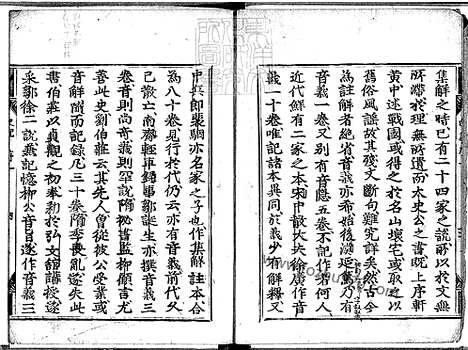 集解之時已有二十四家之說所以於文無
所滯於理無所遺而太史公之書既上序軒
黃中述戰國或得之於名山壞宅或取之以
舊俗風謠故其殘文斷句難究詳矣然古今
為註解者絕省音義亦希始後漢延篤乃有
音義一卷又別有音隱五卷不記作者何人
近代鮮有二家之本宋中散大夫徐廣作音
義一十卷唯記諸本異同於義少有解釋又
中兵郎裴駰亦名家之子也作集解註本合
為八十卷見行於代仍云亦有音義前代久
已散亡南齊輕車錄事鄒誕生亦撰音義三
卷音則尚奇義則罕說隋秘書監柳顧言尤
善此史劉伯莊云其先人曾從彼公受業或
音解隨而記錄凡三十卷隋季喪亂遂失此
書伯莊以貞觀之初奉敕於弘文館講授遂
采鄒徐二說兼記憶柳公音旨遂作音義三